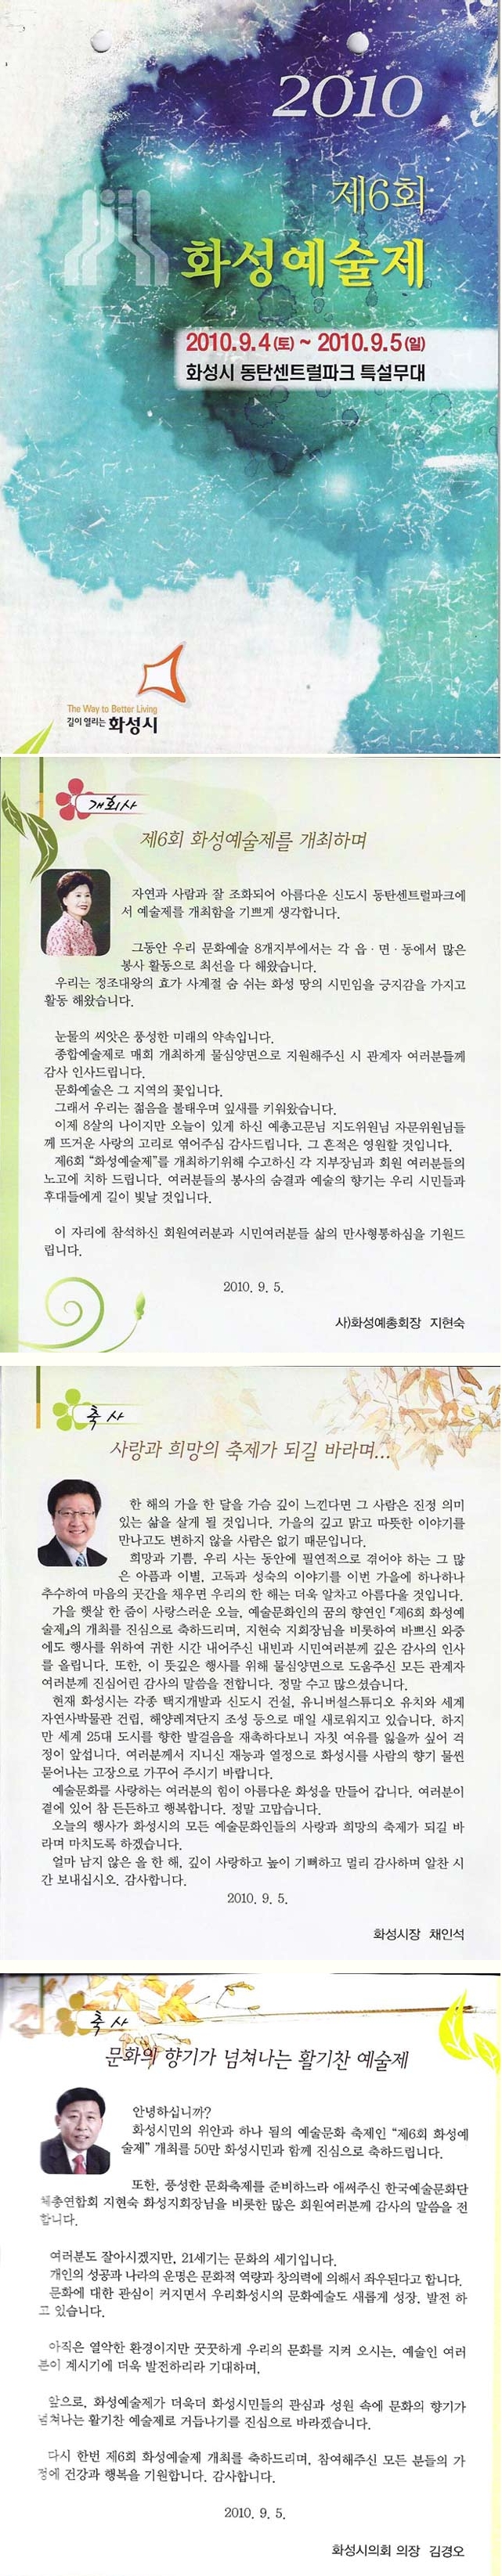 2010
제6회
화성예술제
2010.9.4(토) ~ 2010.9.5(일)
화성시 동탄센트럴파크 특설무대
The Way to Better Living
길이 열리는 화성시
개회사
제6회 화성예술제를 개최하며
자연과 사람과 잘 조화되어 아름다운 신도시 동탄센트럴파크에
서 예술제를 개최함을 기쁘게 생각합니다.
그동안 우리 문화예술 8개지부에서는 각 읍 · 면 · 동에서 많은
봉사 활동으로 최선을 다 해왔습니다.
우리는 정조대왕의 효가 사계절 숨 쉬는 화성 땅의 시민임을 긍지감을 가지고
활동 해왔습니다.
눈물의 씨앗은 풍성한 미래의 약속입니다.
종합예술제로 매회 개최하게 물심양면으로 지원해주신 시 관계자 여러분들께
감사 인사드립니다.
문화예술은 그 지역의 꽃입니다.
그래서 우리는 젊음을 불태우며 잎새를 키워왔습니다.
이제 8살의 나이지만 오늘이 있게 하신 예총고문님 지도위원님 자문위원님들
께 뜨거운 사랑의 고리로 엮어주심 감사드립니다. 그 흔적은 영원할 것입니다.
제6회 “화성예술제”를 개최하기위해 수고하신 각 지부장님과 회원 여러분들의
노고에 치하 드립니다. 여러분들의 봉사의 숨결과 예술의 향기는 우리 시민들과
후대들에게 길이 빛날 것입니다.
이 자리에 참석하신 회원여러분과 시민여러분들 삶의 만사형통하심을 기원드
립니다.
2010. 9. 5.
사)화성예총회장 지현숙
축사
사랑과 희망의 축제가 되길 바라며...
한 해의 가을 한 달을 가슴 깊이 느낀다면 그 사람은 진정 의미
있는 삶을 살게 될 것입니다. 가을의 깊고 맑고 따뜻한 이야기를
만나고도 변하지 않을 사람은 없기 때문입니다.
희망과 기쁨, 우리 사는 동안에 필연적으로 겪어야 하는 그 많
은 아픔과 이별, 고독과 성숙의 이야기를 이번 가을에 하나하나
추수하여 마음의 곳간을 채우면 우리의 한 해는 더욱 알차고 아름다울 것입니다.
가을 햇살 한 줌이 사랑스러운 오늘, 예술문화인의 꿈의 향연인 『제6회 화성예
술제』의 개최를 진심으로 축하드리며, 지현숙 지회장님을 비롯하여 바쁘신 와중
에도 행사를 위하여 귀한 시간 내어주신 내빈과 시민여러분께 깊은 감사의 인사
를 올립니다. 또한, 이 뜻깊은 행사를 위해 물심양면으로 도움주신 모든 관계자
여러분께 진심어린 감사의 말씀을 전합니다. 정말 수고 많으셨습니다.
현재 화성시는 각종 택지개발과 신도시 건설, 유니버설스튜디오 유치와 세계
자연사박물관 건립, 해양레져단지 조성 등으로 매일 새로워지고 있습니다. 하지
만 세계 25대 도시를 향한 발걸음을 재촉하다보니 자칫 여유를 잃을까 싶어 걱
정이 앞섭니다. 여러분께서 지니신 재능과 열정으로 화성시를 사람의 향기 물씬
묻어나는 고장으로 가꾸어 주시기 바랍니다.
예술문화를 사랑하는 여러분의 힘이 아름다운 화성을 만들어 갑니다. 여러분이
곁에 있어 참 든든하고 행복합니다. 정말 고맙습니다.
오늘의 행사가 화성시의 모든 예술문화인들의 사랑과 희망의 축제가 되길 바
라며 마치도록 하겠습니다.
얼마 남지 않은 올 한 해, 깊이 사랑하고 높이 기뻐하고 멀리 감사하며 알찬 시
간 보내십시오. 감사합니다.
2010. 9. 5.
화성시장 채인석
축사
문화의 향기가 넘쳐나는 활기찬 예술제
안녕하십니까?
화성시민의 위안과 하나 됨의 예술문화 축제인 “제6회 화성예
술제” 개최를 50만 화성시민과 함께 진심으로 축하드립니다.
또한, 풍성한 문화축제를 준비하느라 애써주신 한국예술문화단
체총연합회 지현숙 화성지회장님을 비롯한 많은 회원여러분께 감사의 말씀을 전
합니다.
여러분도 잘아시겠지만, 21세기는 문화의 세기입니다.
개인의 성공과 나라의 운명은 문화적 역량과 창의력에 의해서 좌우된다고 합니다.
문화에 대한 관심이 커지면서 우리화성시의 문화예술도 새롭게 성장, 발전 하
고 있습니다.
아직은 열악한 환경이지만 꿋꿋하게 우리의 문화를 지켜 오시는, 예술인 여러
분이 계시기에 더욱 발전하리라 기대하며,
앞으로, 화성예술제가 더욱더 화성시민들의 관심과 성원 속에 문화의 향기가
넘쳐나는 활기찬 예술제로 거듭나기를 진심으로 바라겠습니다.
다시 한번 제6회 화성예술제 개최를 축하드리며, 참여해주신 모든 분들의 가
정에 건강과 행복을 기원합니다. 감사합니다.
2010. 9. 5.
화성시의회 의장 김경오